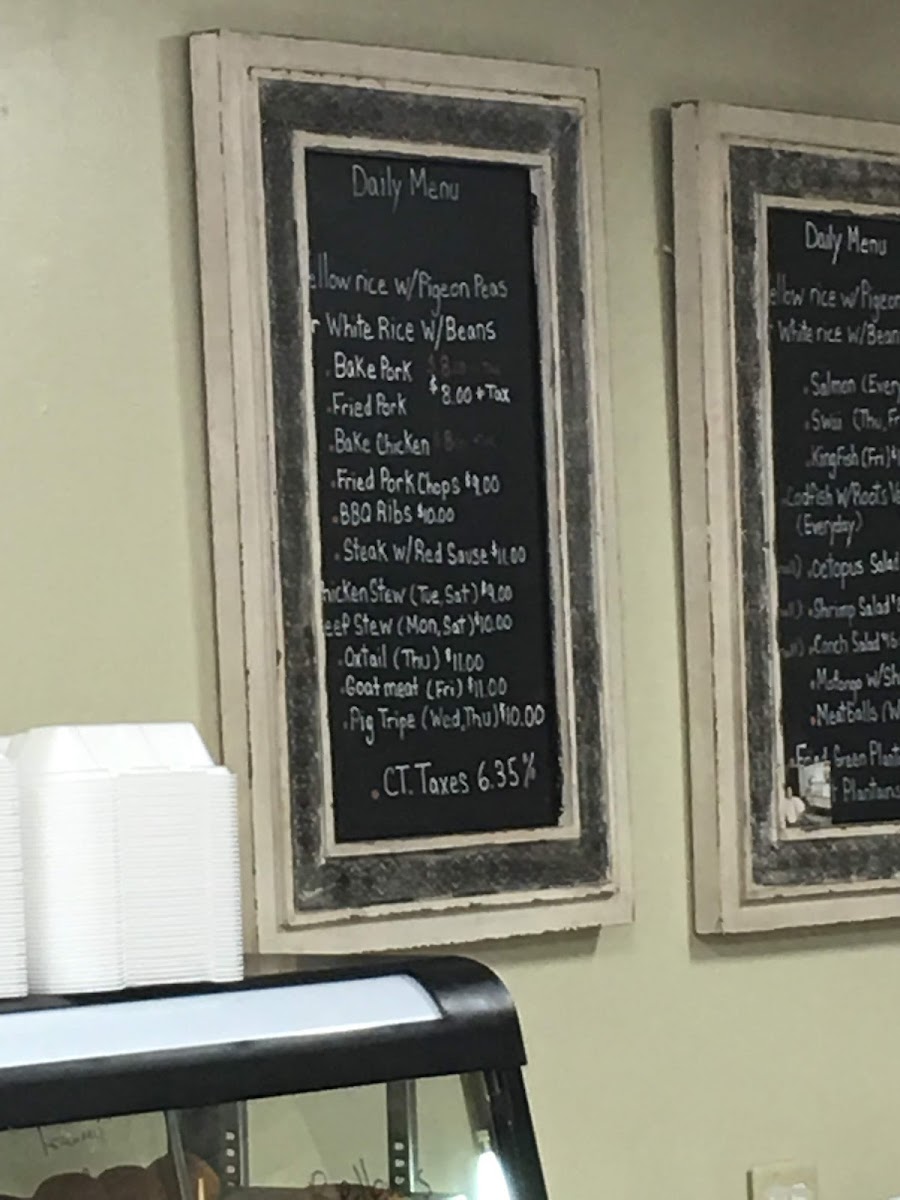 Daily Menu
ellow rice w/Pigeon Peas
r White Rice W/Beans
. Bake Pork
$8.00 + Tax
. Fried Pork
. Bake Chicken
. Fried Pork Chops $9.00
. BBQ Ribs $10.00
. Steak w/Red Sause $11.00
hicken Stew (Tue, Sat) $9.00
eef Stew (Mon, Sat) $10.00
. Oxtail (Thu) $11.00
. Goat meat (Fri) $11.00
. Pig Tripe (Wed, Thu) $10.00
. CT. Taxes 6.35%
Daily Menu
ellow rice w/Pigeon
White rice w/Bean
. Salmon (Every
. Swai (Thu, Fr
. KingFish (Fri) $
. Codfish w/Roots Ve
(Everyday)
. Octopus Salad
. Shrimp Salad
. Conch Salad
w/Sh
. MeatBalls (W
Green Plant
Plantains